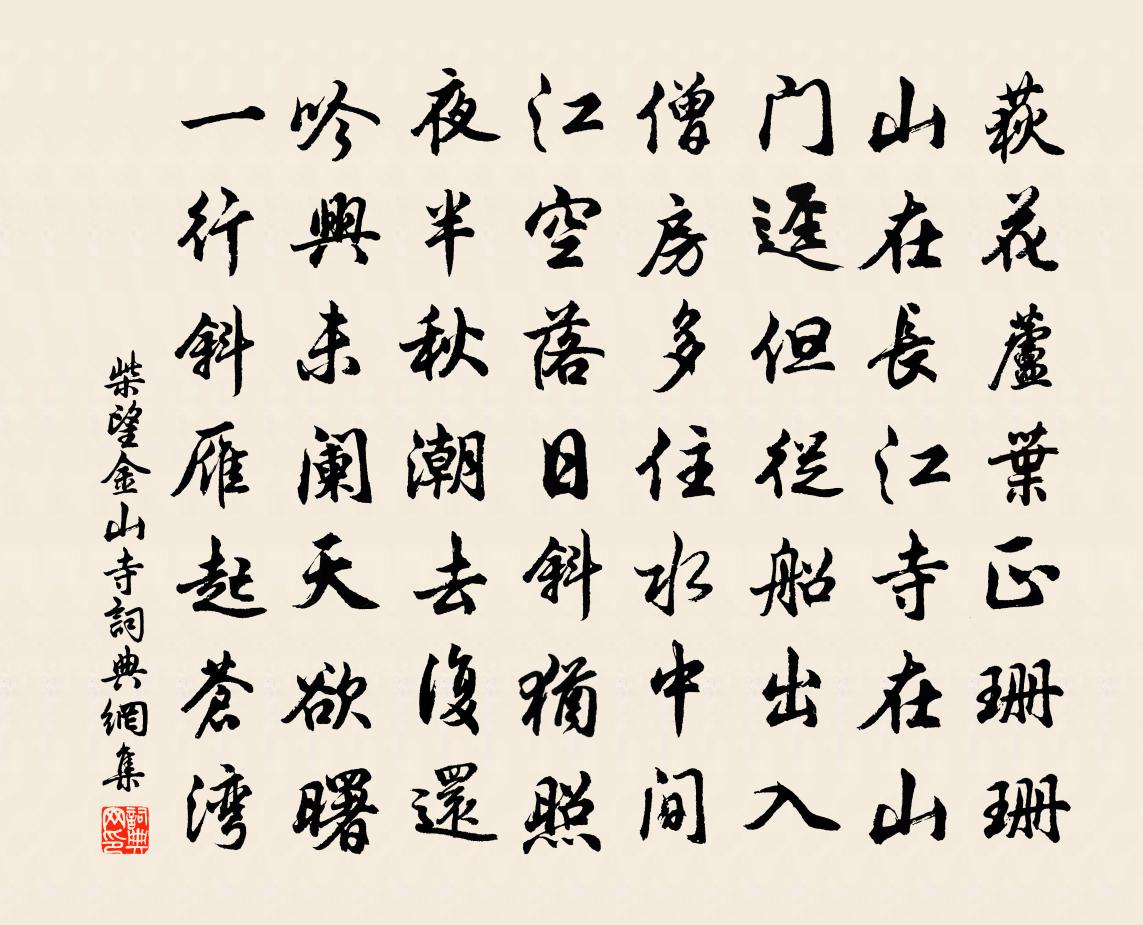 荻花蘆葉正珊珊
山在長江寺在山
门逕但從船出入
僧房多住水中间
江空落日斜猶照
夜半秋潮去復還
吟興未阑天欲曙
一行斜雁起蒼湾
柴望金山寺詞典網集
詞典网印